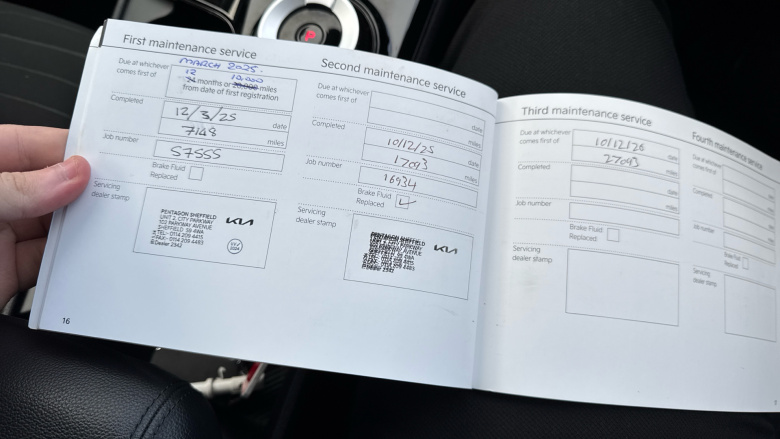 First maintenance service
Due at whichever comes first of
MARCH 2025.
12 10,000
24 months or 20,000 miles
from date of first registration
Completed
12/3/25 date
7148 miles
Job number
57555
Brake Fluid
Replaced
Servicing
dealer stamp
PENTAGON SHEFFIELD
UNIT 2, CITY PARKWAY
102 PARKWAY AVENUE
SHEFFIELD S9 4WA
TEL:- 0114 209 4415
FAX:- 0114 209 4483
Dealer 2342
KIA
16
Second maintenance service
Due at whichever
comes first of
date
miles
Completed
10/12/25 date
17093 miles
Job number
16934
Brake Fluid
Replaced ✓
Servicing
dealer stamp
SHEFFIELD
KIA
Third maintenance service
Due at whichever
comes first of
10/12/26 date
27093 miles
Completed
date
miles
Job number
Brake Fluid
Replaced
Servicing
dealer stamp
Fourth maintenance service
Due at whichever
comes first of
Completed
Job number
Brake Fluid
Replaced
Servicing
dealer stamp
P